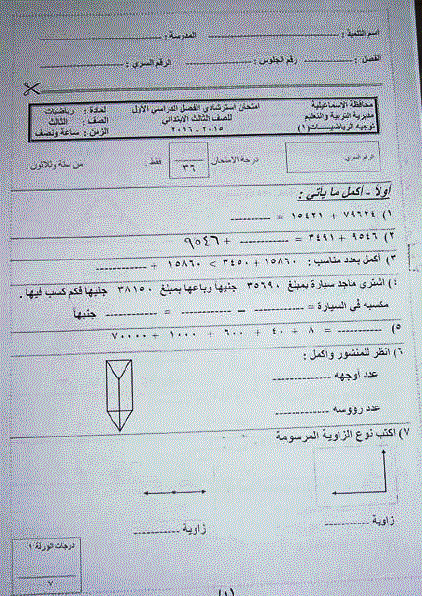 اسم التلميذ : ---------------- المدرسة : ----------------
الفصل : ---------- رقم الجلوس : ---------- الرقم السري : ----------
محافظة الاسماعيلية
مديرية التربية والتعليم
توجيه الرياضيات (١)
امتحان استرشادي الفصل الدراسي الأول
للصف الثالث الابتدائي
٢٠١٥ - ٢٠١٦
المادة : رياضيات
الصف : الثالث
الزمن : ساعة ونصف
الرقم السري
درجة الامتحان
٣٦
فقط
ستة وثلاثون
أولا - أكمل ما يأتي :
١) ٧٩٦٢٤ + ١٥٤٢١ = ----------
٢) ٩٥٤٦ + ٣٤٩١ = ---------- + ٩٥٤٦
٣) أكمل بعدد مناسب : ١٥٨٦٠ + ٣٤٥٠ > ١٥٨٦٠ + ----------
٤) اشترى ماجد سيارة بمبلغ ٣٥٦٩٠ جنيها وباعها بمبلغ ٣٨١٥٠ جنيها فكم كسب فيها .
مكسبه في السيارة = ---------- - ---------- = ---------- جنيها
٥) ---------- = ٨ + ٤٠ + ٦٠٠ + ١٠٠٠ + ٧٠٠٠٠
٦) انظر للمنشور وأكمل :
عدد أوجهه ----------
عدد رءوسه ----------
٧) اكتب نوع الزاوية المرسومة
زاوية ---------- زاوية ----------
درجات الورقة ١
٧
(١)